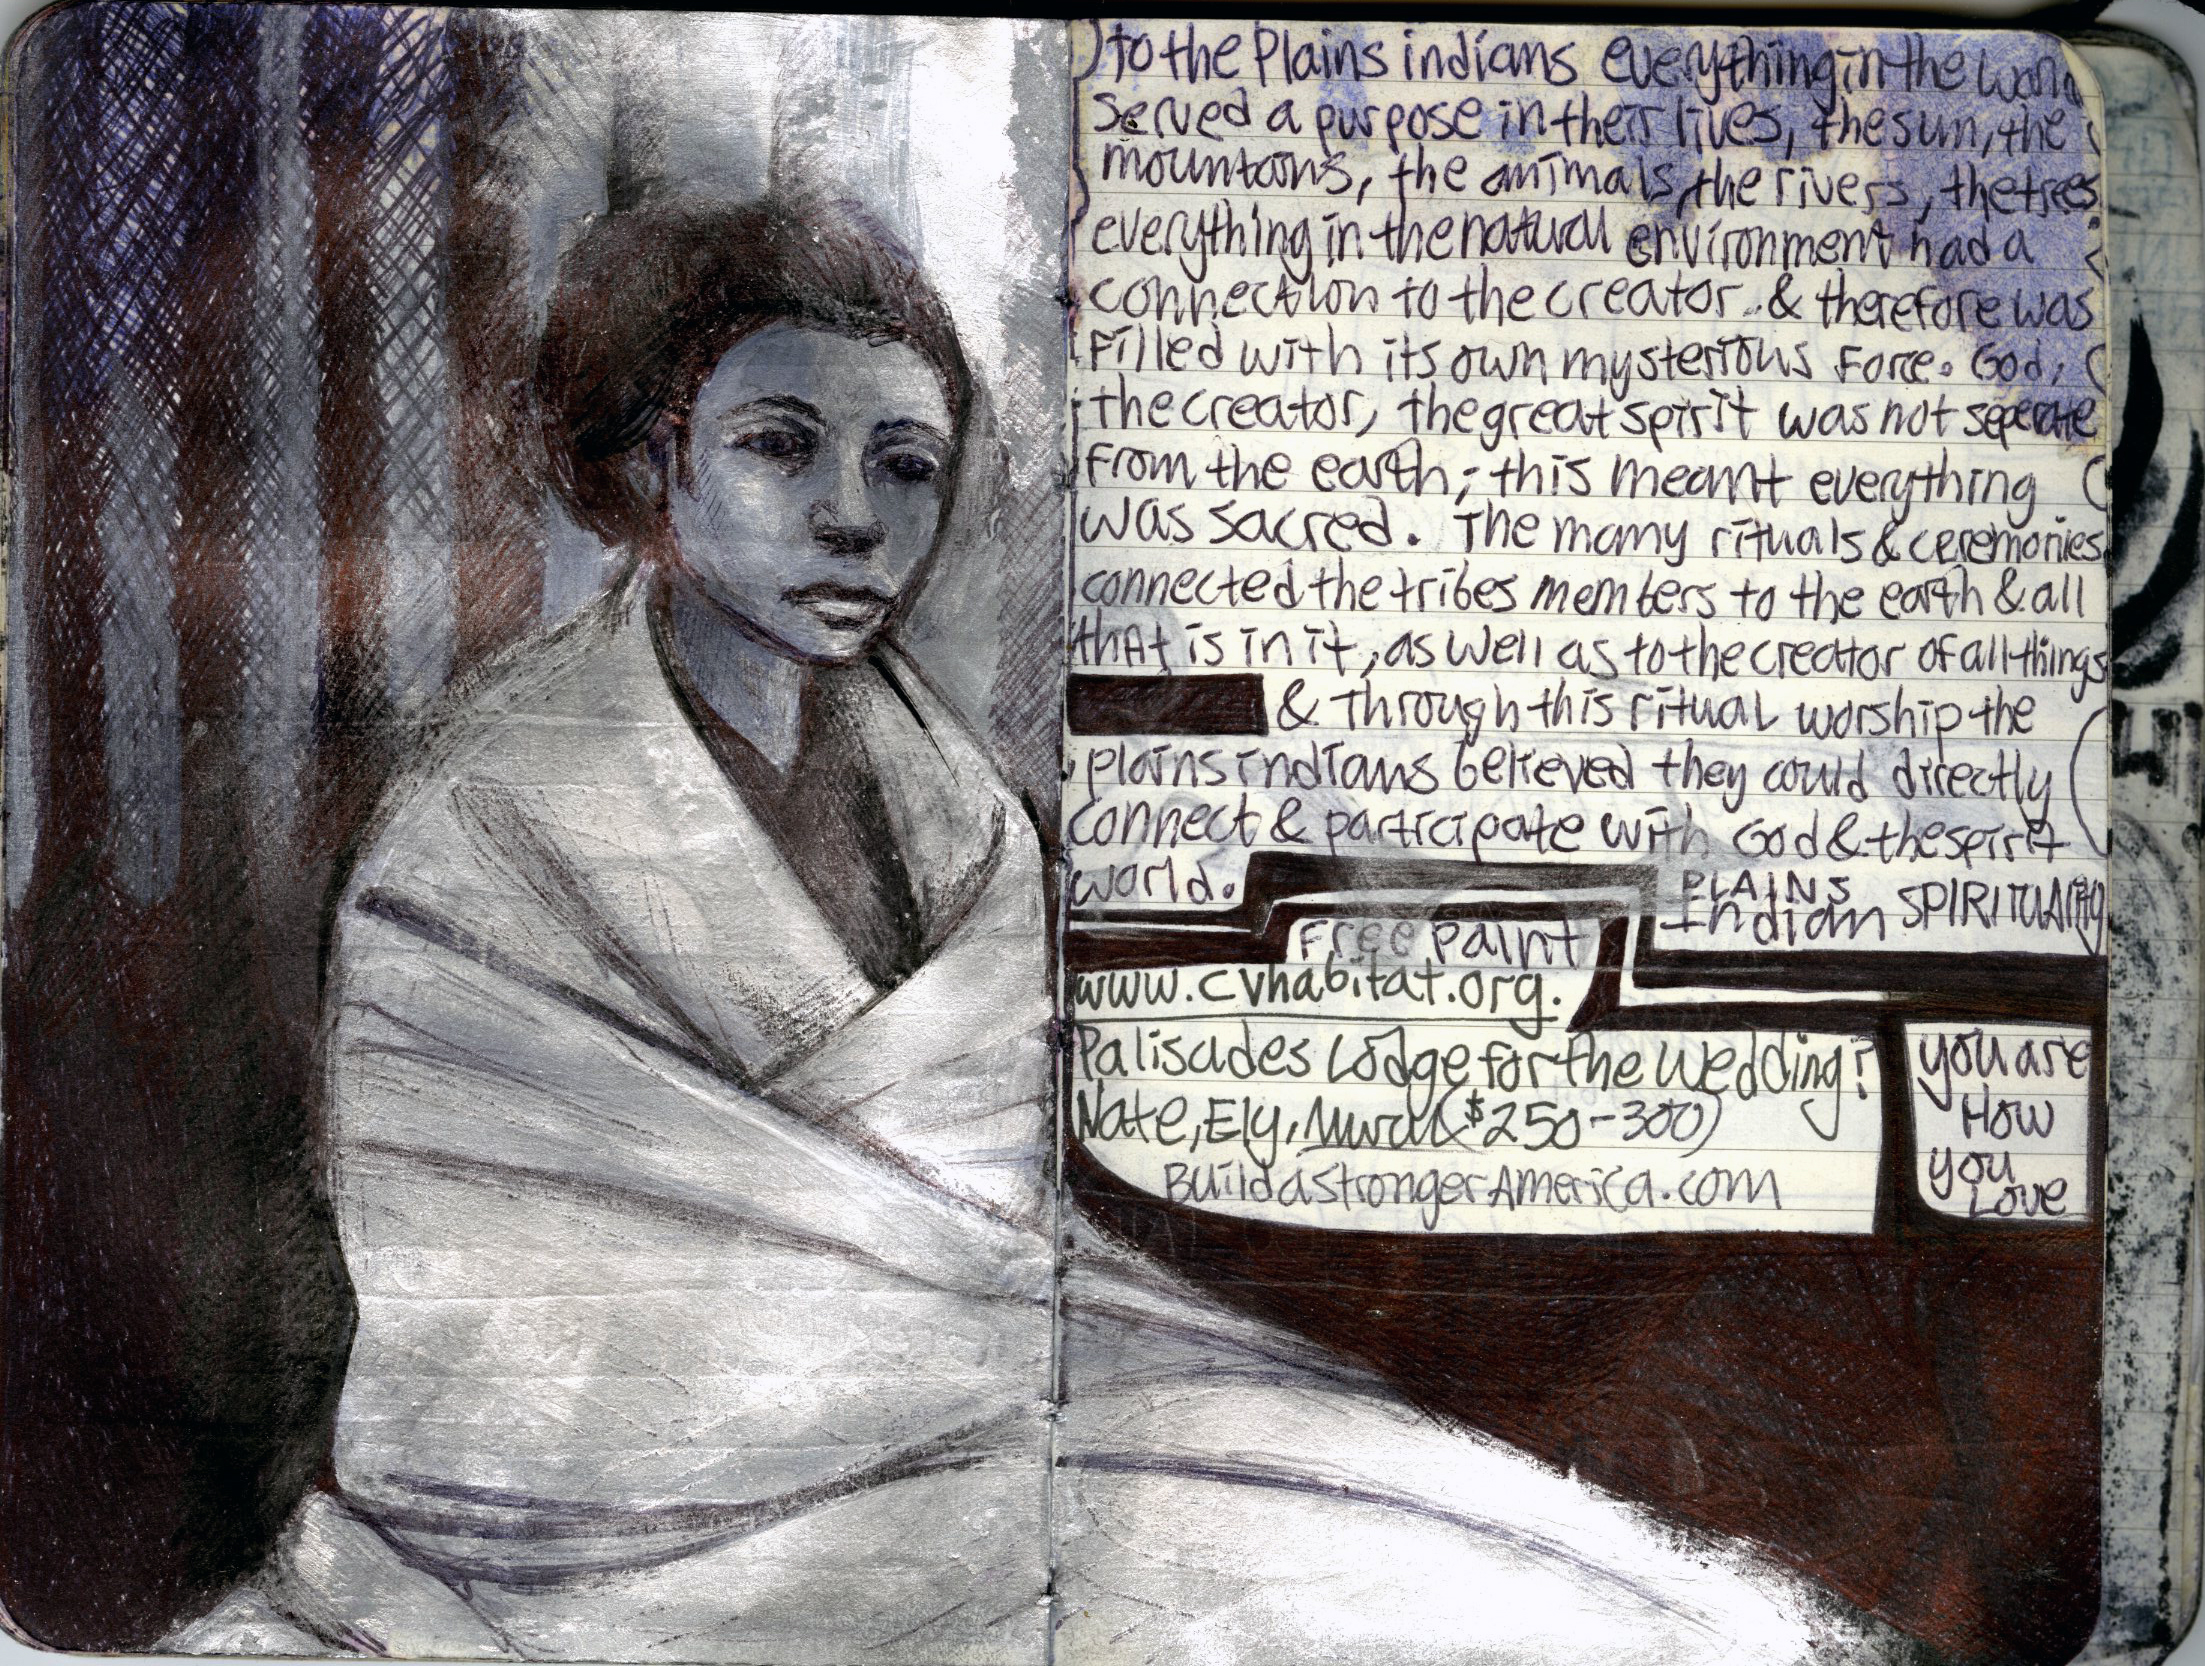 to the Plains indians everything in the world
served a purpose in their lives, the sun, the
mountains, the animals, the rivers, the trees
everything in the natural environment had a
connection to the creator & therefore was
filled with its own mysterious force. God,
the creator, the great spirit was not seperate
from the earth; this meant everything
was sacred. The many rituals & ceremonies
connected the tribes members to the earth & all
that is in it, as well as to the creator of all things
& through this ritual worship the
plains indians believed they could directly
connect & participate with God & the spirit
world.
PLAINS
Indian SPIRITUALITY
Free paint
www.cvhabitat.org.
Palisades Lodge for the wedding?
Nate, Ely, Mural ($250-300)
BuildaStrongerAmerica.com
you are
How
you
Love